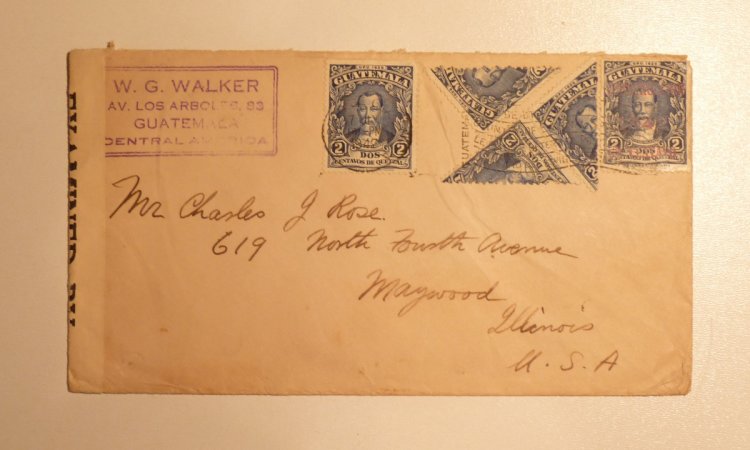 W. G. WALKER
AV. LOS ARBOLES, 93
GUATEMALA
CENTRAL AMERICA
EXAMINED BY
GUATEMALA
2 DOS 2
CENTAVOS DE QUETZAL
GUATEMALA
GUATEMALA
GUATEMALA
2 DOS 2
CENTAVOS DE QUETZAL
Mr Charles J Rose.
619 North Fourth Avenue
Maywood
Illinois
U. S. A